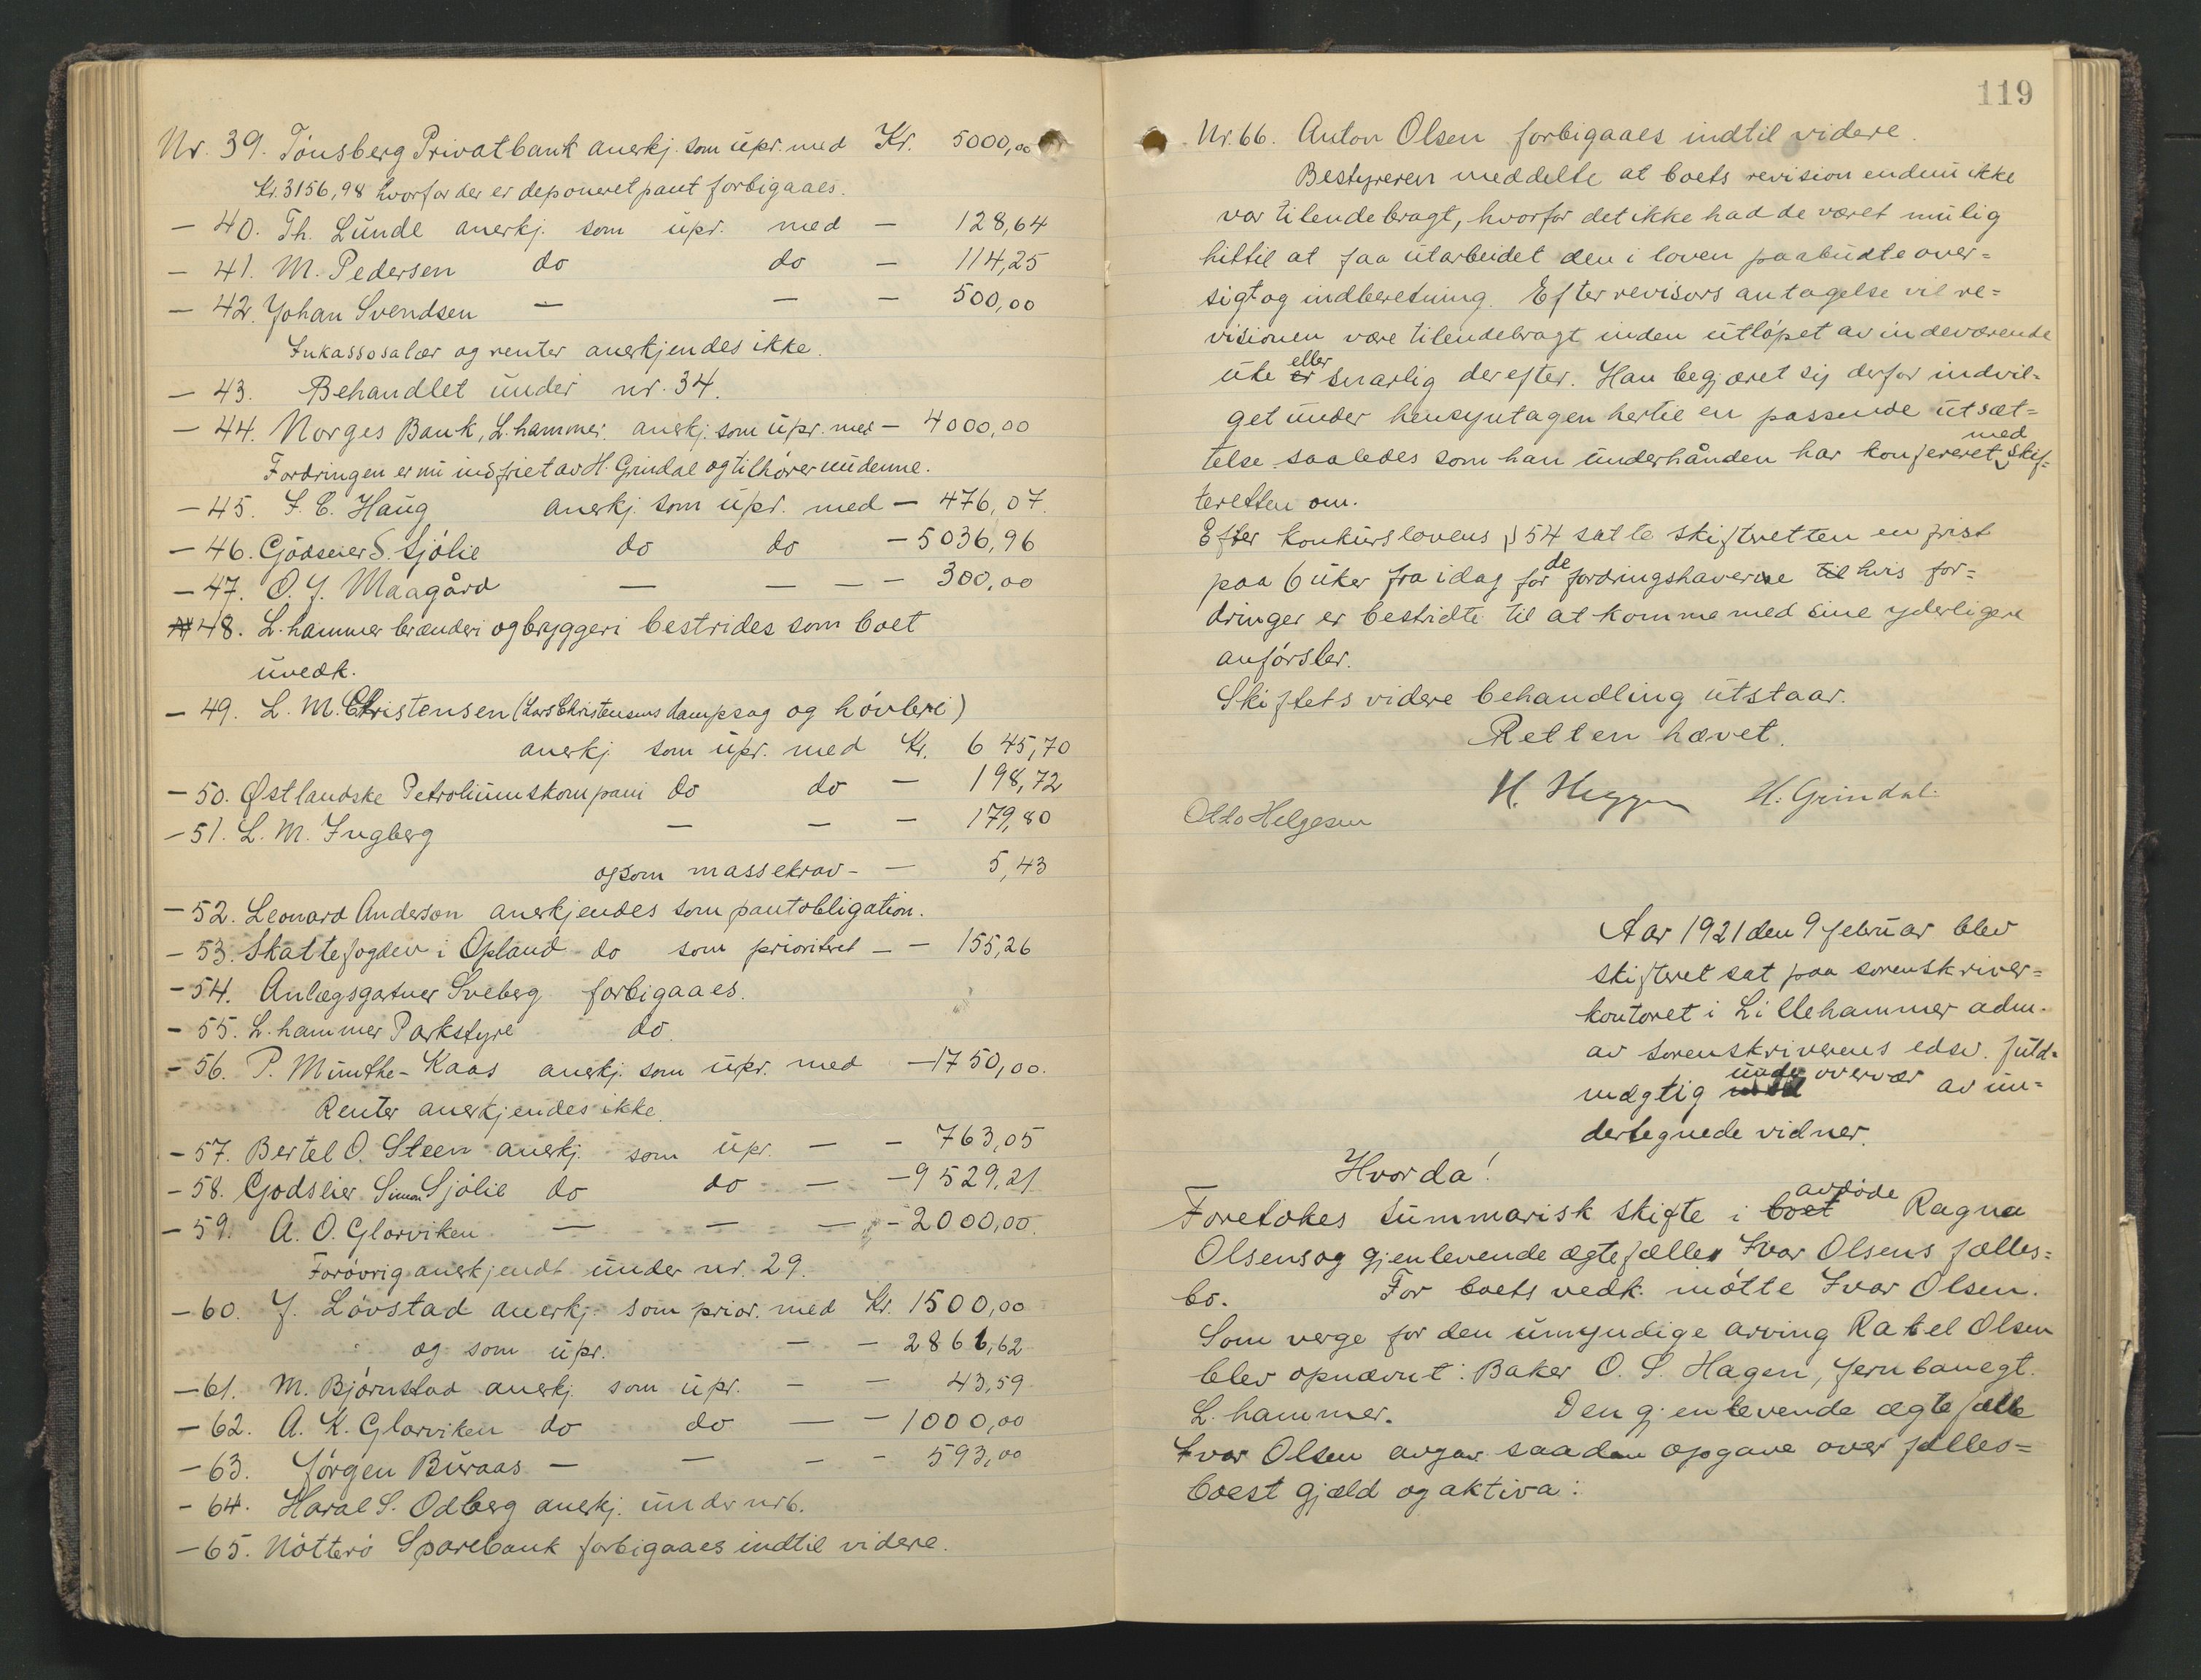 Nr. 39. Tönsberg Privatbank anerkj. som upr. med Kr. 5000,00
Kr. 3156,98 hvorfor der er deponeret pant forbigaaes.
— 40. Th. Lunde anerkj. som upr. med — 128,64
— 41. M. Pedersen do do — 114,25
— 42. Johan Svendsen — — — 500,00
Inkassosalær og renter anerkjendes ikke.
— 43. Behandlet under nr. 34.
— 44. Norges Bank, L.hammer. anerkj. som upr. med — 4000,00
Fordringen er nu indfriet av H. Grindal og tilhører nu denne.
— 45. F. C. Haug anerkj. som upr. med — 476,07.
— 46. Godseier S. Sjölie do do — 5036,96
— 47. O. J. Maagård — — — — 300,00
48. L.hammer brænderi og bryggeri bestrides som boet
uvedk.
— 49. L. M. Christensen (Lars Christensens dampsag og hövleri)
anerkj. som upr. med Kr. 645,70
— 50. Østlandske Petroliumskompani do do — 198,72
— 51. L. M. Ingberg — — — 179,80
og som massekrav — — 5,43
— 52. Leonard Anderson anerkjendes som pantobligation.
— 53. Skattefogden i Opland do som prioritert — — 155,26
— 54. Anlægsgartner Sveberg forbigaaes.
— 55. L.hammer Parkstyre do.
— 56. P. Munthe-Kaas anerkj. som upr. med — 1750,00.
Renter anerkjendes ikke.
— 57. Bertel O. Steen anerkj. som upr. — — 763,05
— 58. Godseier Simon Sjölie do do — — 9529,21
— 59. A. O. Glorviken — — — — 2000,00.
Forövrig anerkjendt under nr. 29.
— 60. J. Lövstad anerkj. som prior. med Kr. 1500,00
og som upr. — — 2866,62
— 61. M. Björnstad anerkj. som upr. — — 43,59
— 62. A. K. Glorviken do do — — 1000,00
— 63. Jörgen Buraas — — — — 593,00
— 64. Haral S. Odberg anerkj. under nr 6.
— 65. Nötterö Sparebank forbigaaes indtil videre.
119
Nr. 66. Anton Olsen forbigaaes indtil videre.
Bestyreren meddelte at boets revision endnu ikke
var tilendebragt, hvorfor det ikke hadde været mulig
hittil at faa utarbeidet den i loven paabudte over=
sigt og indberetning. Efter revisors antagelse vil re=
visionen være tilendebragt inden utlöpet av indeværende
uke eller snarlig derefter. Han begjæret sig derfor indvil=
get under hensyntagen hertil en passende utsæt=
telse saaledes som han underhånden har konfereret med skif=
teretten om.
Efter konkurslovens § 54 satte skifteretten en frist
paa 6 uker fra idag for de fordringshaverne til hvis for=
dringer er bestridte til at komme med sine yderligere
anförsler.
Skiftets videre behandling utstaar.
Retten hævet.
H. Heggen H. Grindal.
Otto Helgesen
Aar 1921 den 9 februar blev
skifteret sat paa sorenskriver=
kontoret i Lillehammer adm.
av sorenskriverens edsv. fuld=
mægtig under overvær av un=
dertegnede vidner.
Hvorda!
Foretokes summarisk skifte i boet avdöde Ragna
Olsens og gjenlevende ægtefælle Ivar Olsens fælles=
bo. For boets vedk. mötte Ivar Olsen.
Som verge for den umyndige arving Rakel Olsen
blev opnævnt: Baker O. S. Hagen, Jernbanegt.
L.hammer. Den gjenlevende ægtefælle
Ivar Olsen avgav saadan opgave over fælles=
boest gjæld og aktiva: